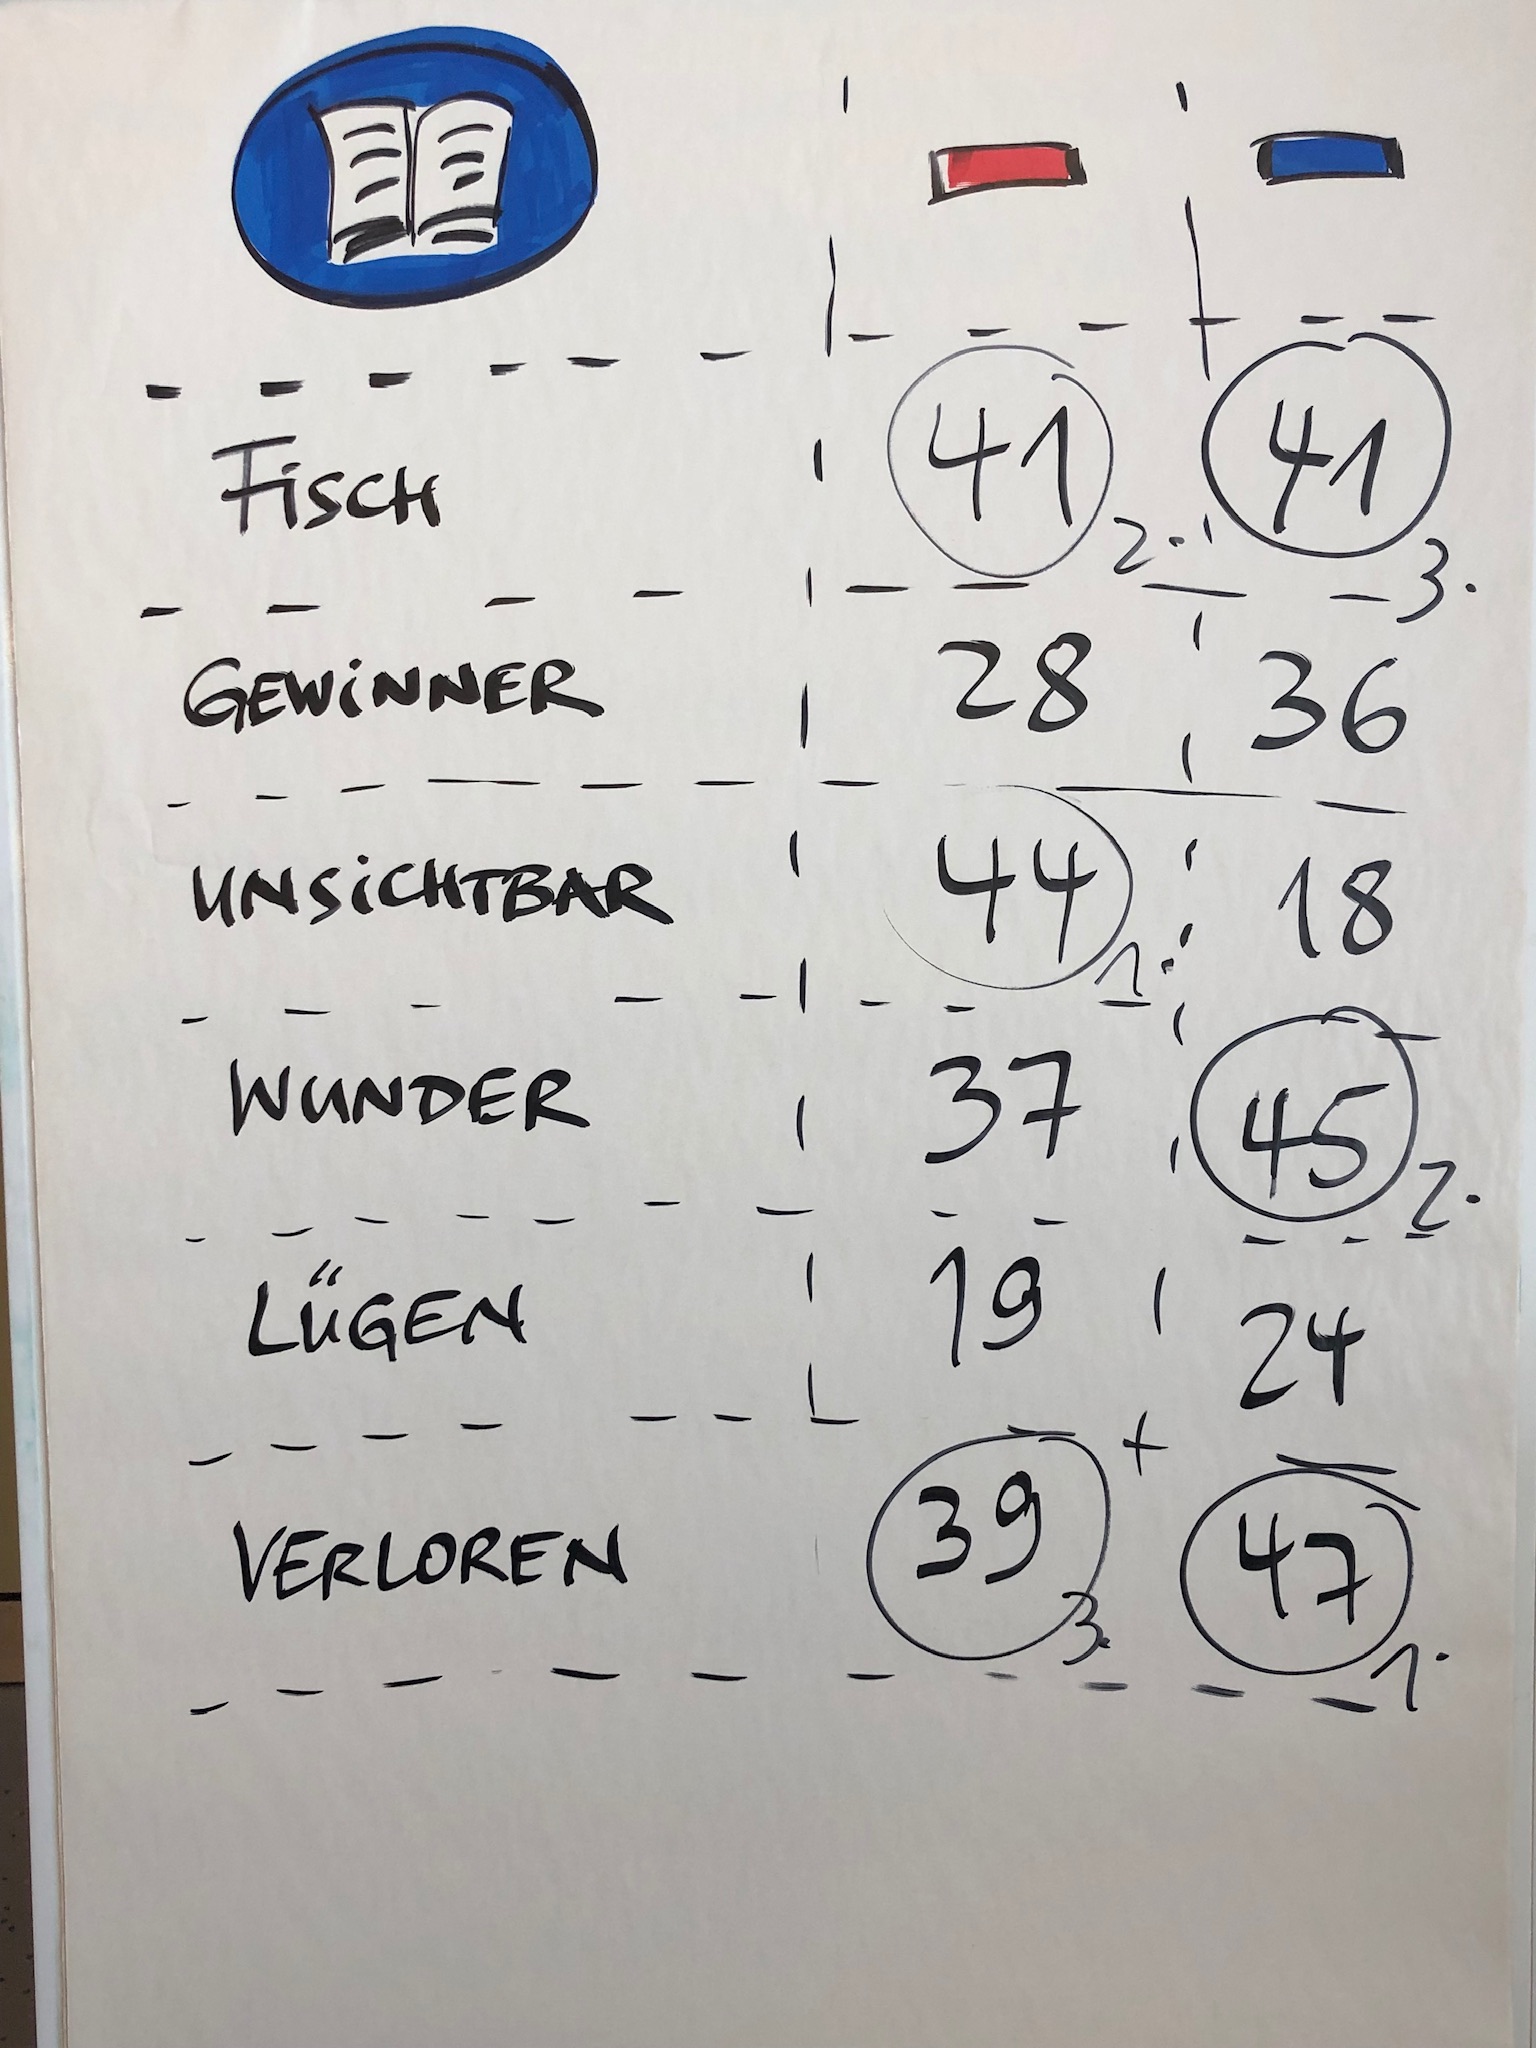 Fisch 41 2. 41 3.
GEWINNER 28 36
UNSICHTBAR 44 1. 18
WUNDER 37 45 2.
LÜGEN 19 24
VERLOREN 39 3. 47 1.